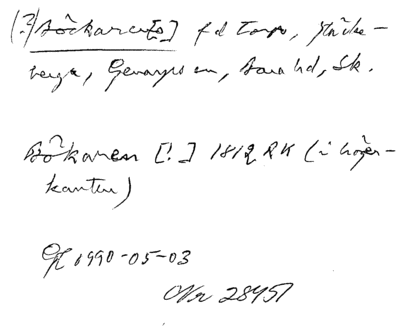 (?) Bökaren[s] f d torp, Stäcke-
berga, Genarps sn, Bara hd, Sk.
Bökaren [!] 1812 RK (i höger-
kanten)
1990-05-03
Nr 28451